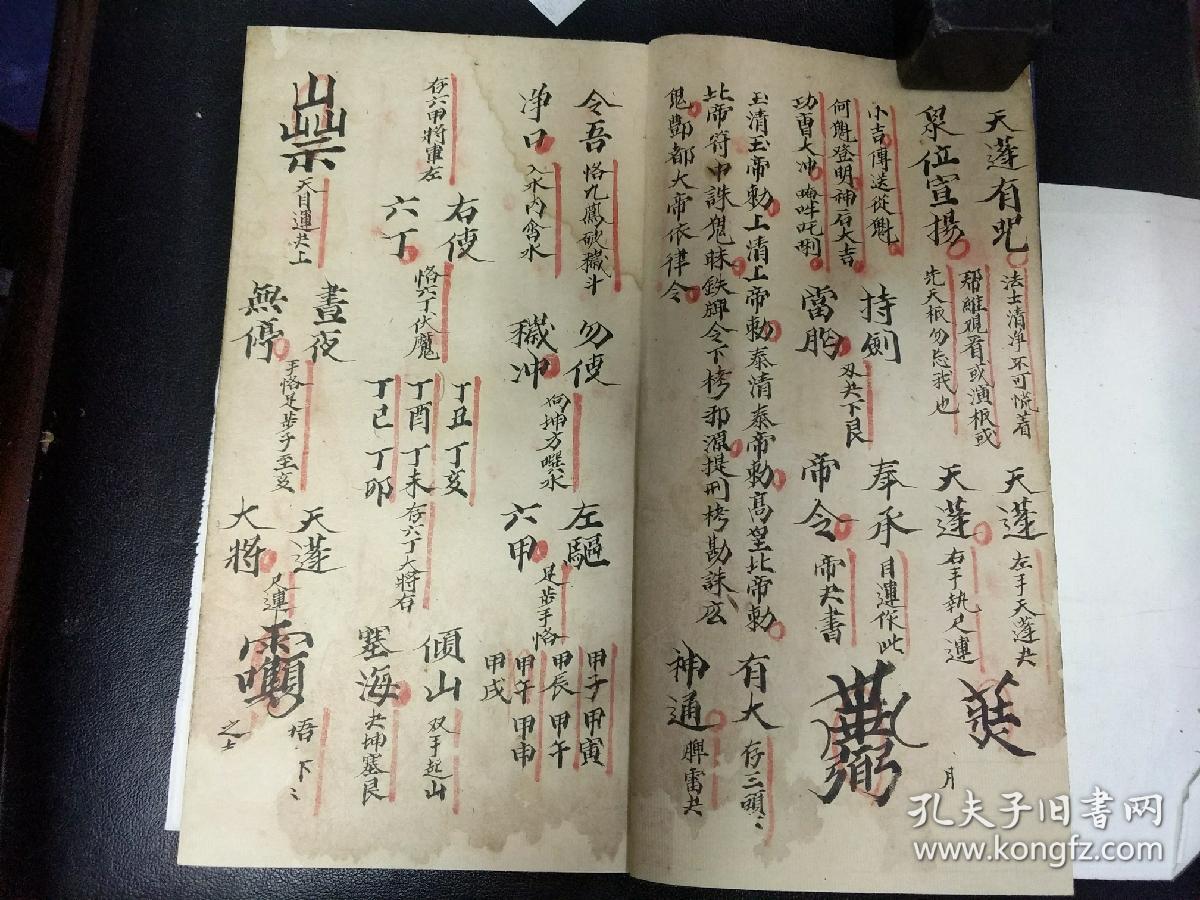 天蓬有咒
衆位宣揚
法士清净不可慌着
先天根勿忘我也
天蓬
天蓬
左手天蓬共
右手執尺連
月
小吉傳送從魁
何魁登明神后大吉
功曹大冲
持劍
當胸
双共下艮
奉承
帝令
目運作此
帝共書
玉清玉帝勅上清上帝勅泰清泰帝勅高皇北帝勅
北帝符中誅鬼昧鉄脚令下栲邪源提刑栲勘誅庅
鬼酆都大帝依律令
有大
神通
存三頭〻
脾雷共
令吾
净口
恪九鳳破穢斗
入水内含水
勿使
穢冲
向坤方噀水
左驅
六甲
足步手恪
甲子甲寅
甲辰甲午
甲午甲申
甲戌
存六甲將軍左
右使
六丁
恪六丁伏魔
丁丑丁亥
丁酉丁未
丁巳丁卯
存六丁大將右
傾山
塞海
双手起山
共坤塞艮
天目運共上
晝夜
無停
手恪足步子至亥
天蓬
大將
尺連
捂下〻
之士
孔夫子旧书网
www.kongfz.com